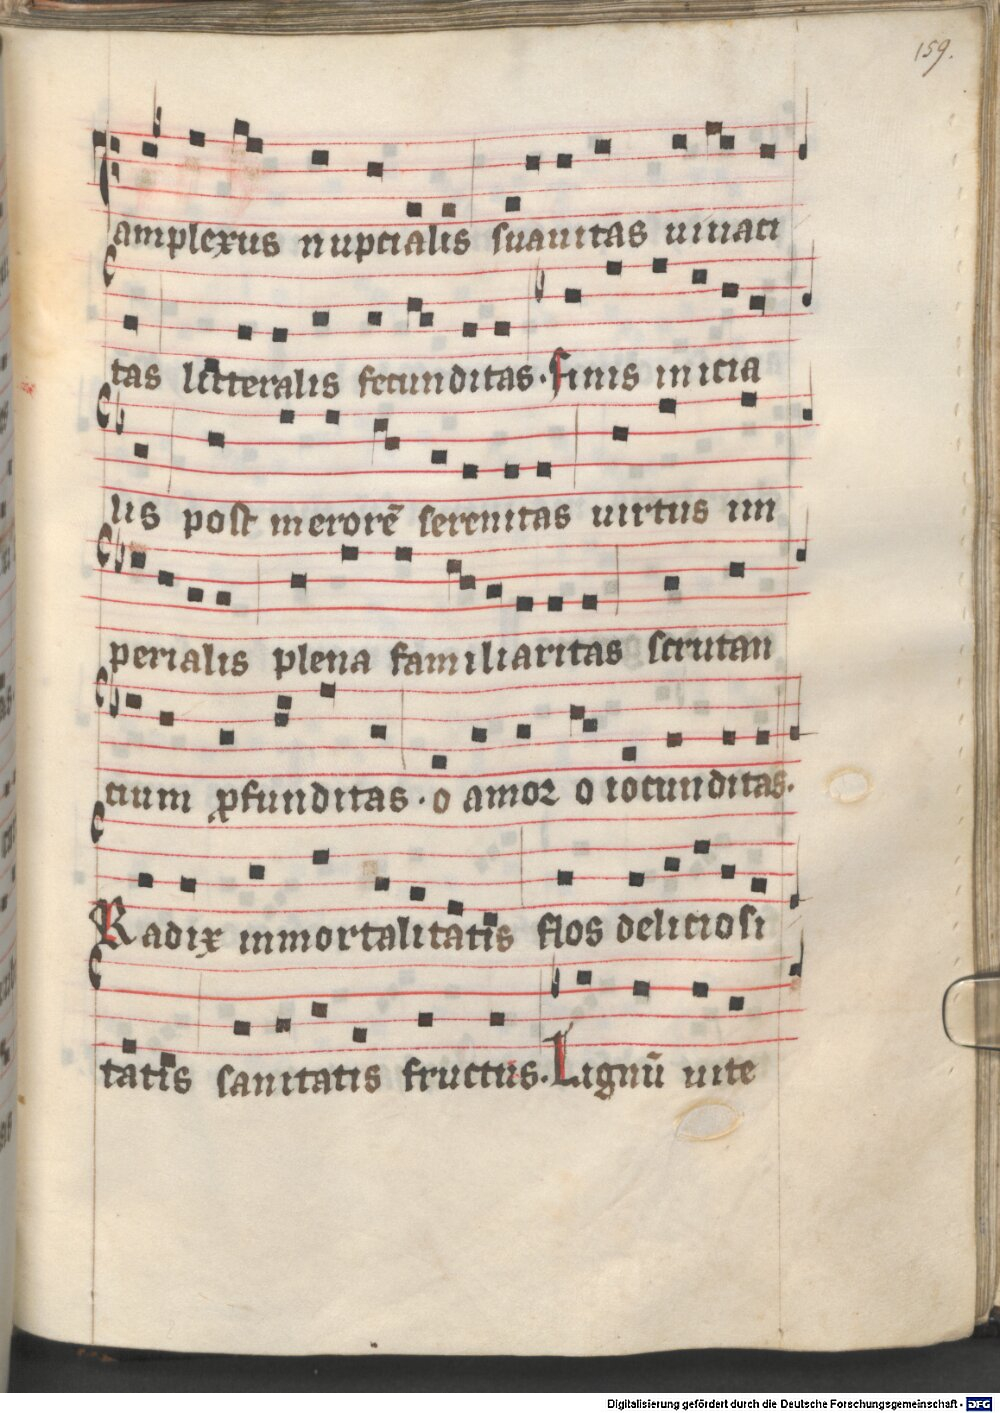 159.
amplexus nupcialis suauitas uiuaci
tas litteralis fecunditas. Finis inicia
lis post merorē serenitas uirtus im
perialis plena familiaritas scrutan
cium ꝓfunditas. o amor o iocunditas.
Radix inmortalitatis flos deliciosi
tatis sanitatis fructus. Lignū uite
Digitalisierung gefördert durch die Deutsche Forschungsgemeinschaft - DFG